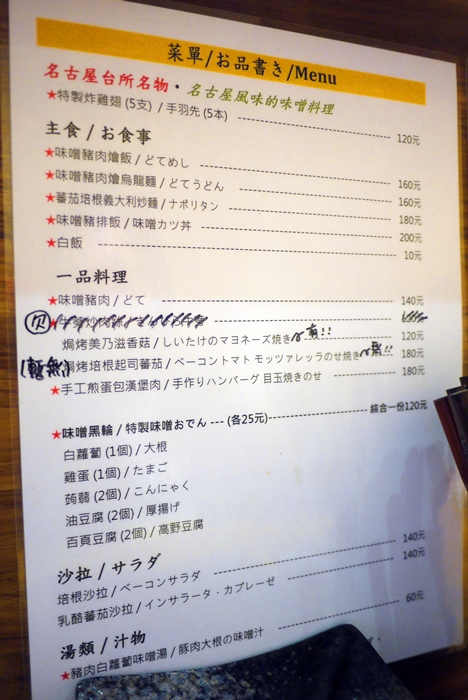 菜單/お品書き/Menu
名古屋台所名物・名古屋風味的味噌料理
★特製炸雞翅 (5支) / 手羽先 (5本) 120元
主食 / お食事
★味噌豬肉燴飯 / どてめし 160元
★味噌豬肉燴烏龍麵 / どてうどん 160元
★蕃茄培根義大利炒麵 / ナポリタン 180元
★味噌豬排飯 / 味噌カツ丼 200元
★白飯 10元
一品料理
★味噌豬肉 / どて 140元
欠
焗烤美乃滋香菇 / しいたけのマヨネーズ焼き 有!! 120元
(暫無) 焗烤培根起司蕃茄 / ベーコントマト モッツァレッラのせ焼き 180元
★手工煎蛋包漢堡肉 / 手作りハンバーグ 目玉焼きのせ 180元
★味噌黑輪 / 特製味噌おでん --- (各25元) 綜合一份120元
白蘿蔔 (1個) / 大根
雞蛋 (1個) / たまご
蒟蒻 (2個) / こんにゃく
油豆腐 (2個) / 厚揚げ
百頁豆腐 (2個) / 高野豆腐
沙拉 / サラダ
培根沙拉 / ベーコンサラダ 140元
乳酪蕃茄沙拉 / インサラータ・カプレーゼ 140元
湯類 / 汁物
★豬肉白蘿蔔味噌湯 / 豚肉大根の味噌汁 60元